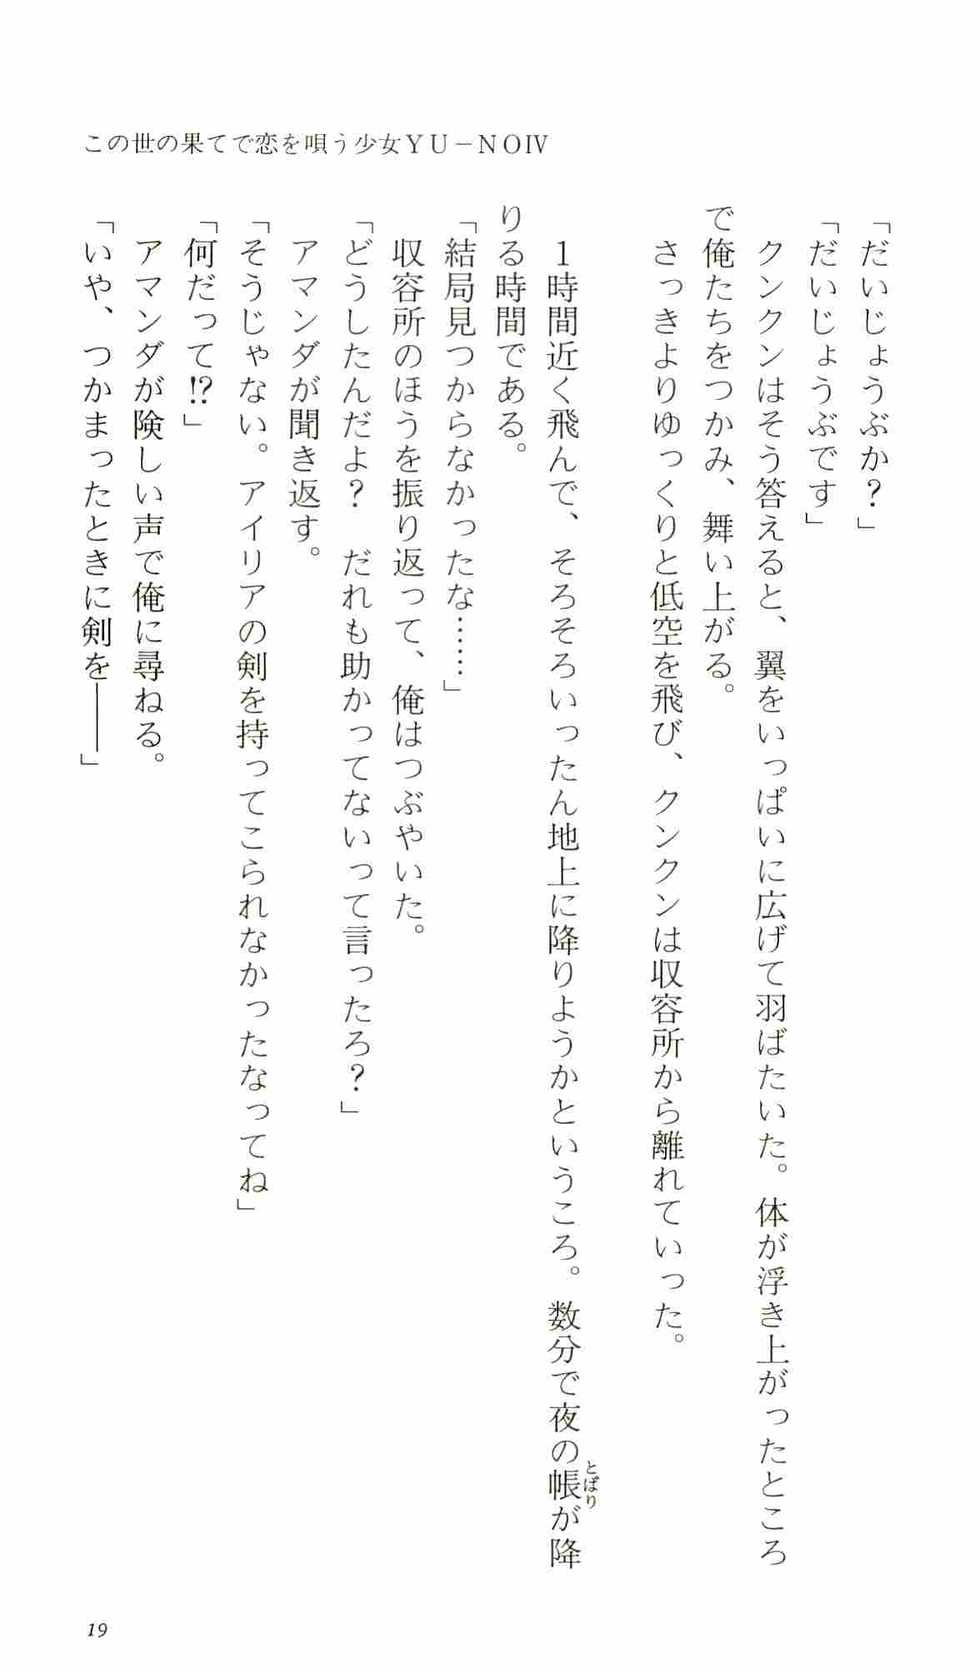 この世の果てで恋を唄う少女ＹＵ－ＮＯⅣ
「だいじょうぶか？」
「だいじょうぶです」
　クンクンはそう答えると、翼をいっぱいに広げて羽ばたいた。体が浮き上がったところ
で俺たちをつかみ、舞い上がる。
　さっきよりゆっくりと低空を飛び、クンクンは収容所から離れていった。
　１時間近く飛んで、そろそろいったん地上に降りようかというころ。数分で夜の帳とばりが降
りる時間である。
「結局見つからなかったな……」
　収容所のほうを振り返って、俺はつぶやいた。
「どうしたんだよ？　だれも助かってないって言ったろ？」
　アマンダが聞き返す。
「そうじゃない。アイリアの剣を持ってこられなかったなってね」
「何だって!?」
　アマンダが険しい声で俺に尋ねる。
「いや、つかまったときに剣を――」
19